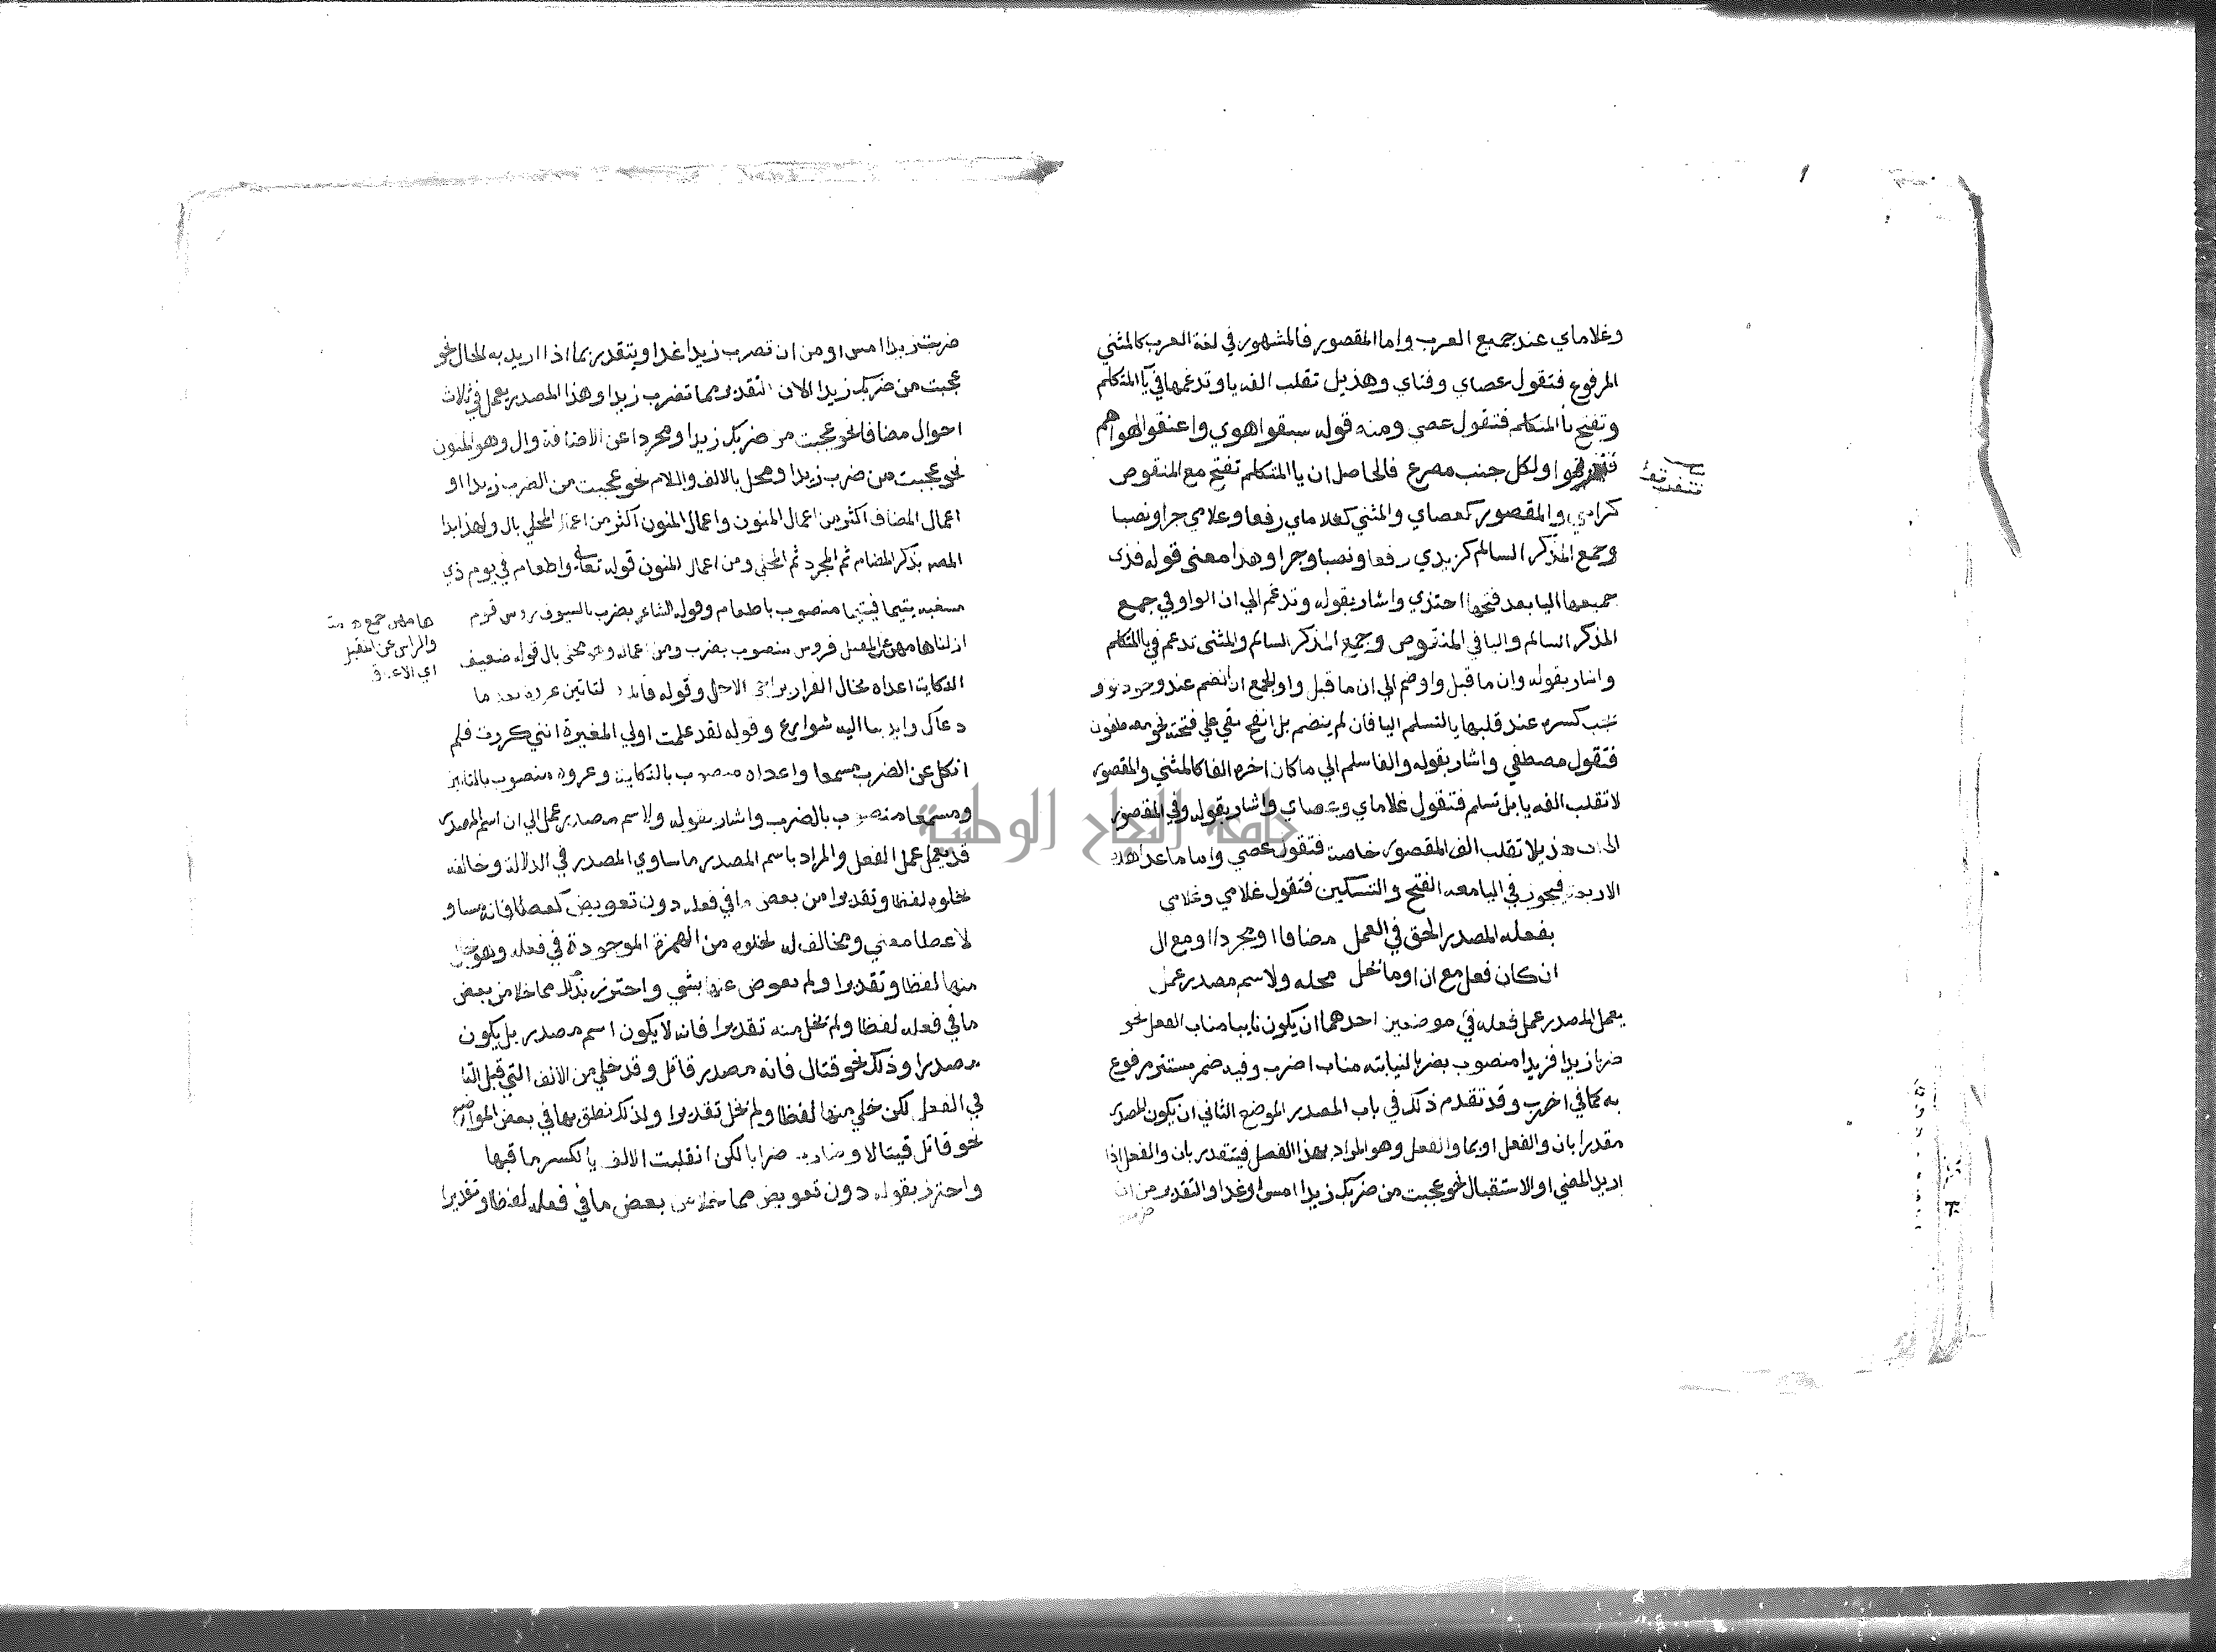 وغلاماي عند جميع العرب واما المقصور فالمشهور في لغة العرب كالمثني
المرفوع فتقول عصاي وفتاي وهذيل تقلب الفه يا وتدغمها في يآ المتكلم
وتفتح يأ المتكلم فتقول عصي ومنه قوله سبقوا هوي واعنقوا لهواهم
ولكل جنب مصرع فالحاصل ان يا المتكلم تفتح مع المنقوص
كرامي والمقصور كعصاي والمثني كغلاماي رفعا وغلامي جرا ونصبا
وجمع المذكر السالم كزيدي رفعا ونصبا وجرا وهذا معنى قوله فذى
جميعها اليا بعد فتحها احتذي واشار بقوله وتدغم الي ان الواو في جمع
المذكر السالم واليا في المنقوص وجمع المذكر السالم والمثنى تدغم في يا المتكلم
واشار بقوله وان ما قبل واو ضم الي ان ما قبل واو الجمع ان انضم عند وجود
كسره عند قلبها يا لتسلم اليا فان لم ينضم بل انفتح بقي علي فتحته نحو مصطفون
فتقول مصطفي واشار بقوله والفا سلم الي ما كان اخره الفا كالمثني والمقصور
لا تقلب الفه يا بل تسلم فتقول غلاماي وعصاي واشار بقوله وفي المقصور
الى ان هذيلا تقلب الف المقصور خاصة فتقول عصي واما ما عدا هذه
الاربعة فيجوز في اليا معه الفتح والتسكين فتقول غلامي وغلامي
بفعله المصدر الحق في العمل مضافا او مجردا او مع ال
ان كان فعل مع ان او ما يحل محله ولاسم مصدر عمل
يعمل المصدر عمل فعله في موضعين احدهما ان يكون نايبا مناب الفعل نحو
ضربا زيدا فزيدا منصوب بضربا لنيابته مناب اضرب وفيه ضمر مستتر مرفوع
به كما في اضرب وقد تقدم ذلك في باب المصدر الموضع الثاني ان يكون المصدر
مقدرا بان والفعل او بما والفعل وهو المراد بهذا الفصل فيتقدر بان والفعل اذا
اريد المضي او الاستقبال نحو عجبت من ضربك زيدا امس او غدا والتقدير من ان
ضربت
ضربت زيدا امس او من ان تضرب زيدا غدا ويتقدر بما اذا اريد به الحال نحو
عجبت من ضربك زيدا الان التقدير مما تضرب زيدا وهذا المصدر يعمل في ثلاث
احوال مضافا نحو عجبت من ضربك زيدا ومجردا عن الاضافة وال وهو المنون
نحو عجبت من ضرب زيدا ومحلي بالالف واللام نحو عجبت من الضرب زيدا او
اعمال المضاف اكثر من اعمال المنون واعمال المنون اكثر من اعمال المحلي بال ولهذا بدا
المصـ بذكر المضاف ثم المجرد ثم المحلى ومن اعمال المنون قوله تعالي واطعام في يوم ذي
مسغبه يتيما فيتيما منصوب باطعام وقوله الشاعر بضرب بالسيوف روس قوم
ازلنا هامهن عن المقيل فروس منصوب بضرب ومن اعماله وهو محلى بال قوله ضعيف
النكاية اعداه يخال الفرار يراخي الاجل وقوله فانك والتابين عروة بعد ما
دعاك وايدينا اليه شوارع وقوله لقد علمت اولي المغيرة انني كررت فلم
انكل عن الضرب مسمعا واعداه منصوب بالنكاية وعروه منصوب بالتابين
ومسمعا منصوب بالضرب واشار بقوله ولاسم مصدر عمل الي ان اسم المصدر
قد يعمل عمل الفعل والمراد باسم المصدر ما ساوي المصدر في الدلالة وخالفه
بخلوه لفظا وتقديرا من بعض ما في فعله دون تعويض كعطا فانه مساو
لاعطا معني ومخالف له بخلوه من الهمزة الموجودة في فعله وهو خال
منها لفظا وتقديرا ولم يعوض عنها بشي واحترز بذلك مما خلا من بعض
ما في فعله لفظا ولم يخل منه تقديرا فانه لا يكون اسم مصدر بل يكون
مصدرا وذلك نحو قتال فانه مصدر قاتل وقد خلي من الالف التي قبل التا
في الفعل لكن خلي منها لفظا ولم يخل تقديرا ولذلك نطق بها في بعض المواضع
نحو قاتل قيتالا وضارب ضرابا لكن انقلبت الالف يا لكسر ما قبلها
واحترز بقوله دون تعويض مما خلا من بعض ما في فعله لفظا وتقديرا
والراس عن المقيل
جامعة النجاح الوطنية